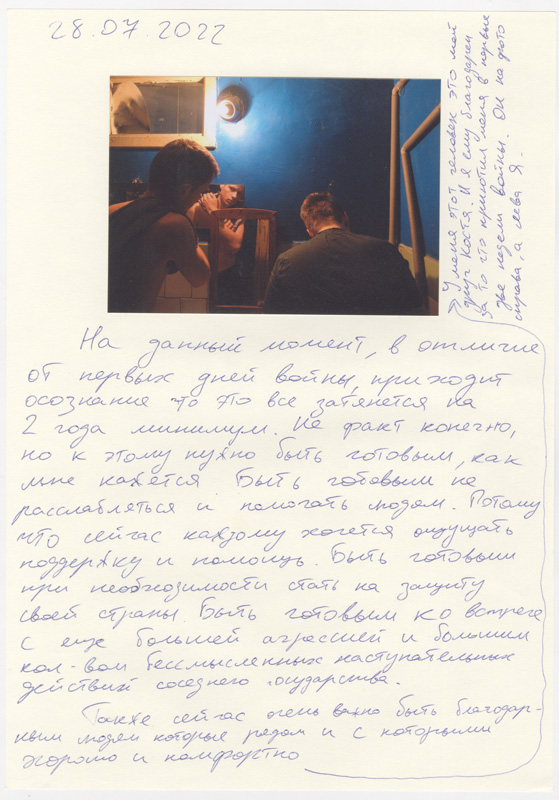 28.07.2022
На данный момент, в отличие
от первых дней войны, приходит
осознание то это все затянется на
2 года минимум. Не факт конечно,
но к этому нужно быть готовым, как
мне кажется. Быть готовым не
расслабляться и помогать людям. Потому
что сейчас каждому хочется ощущать
поддержку и помощь. Быть готовым
при необходимости стать на защиту
своей страны. Быть готовым ко встрече
с еще большей агрессией и большим
кол-вом бессмысленных наступательных
действий соседнего государства.
Также сейчас очень важно быть благодар-
ным людям которые рядом и с которыми
хорошо и комфортно
У меня этот человек это мой
друг Костя. И я ему благодарен
за то что приютил меня в первые
две недели войны. Он на фото
справа, а слева я.